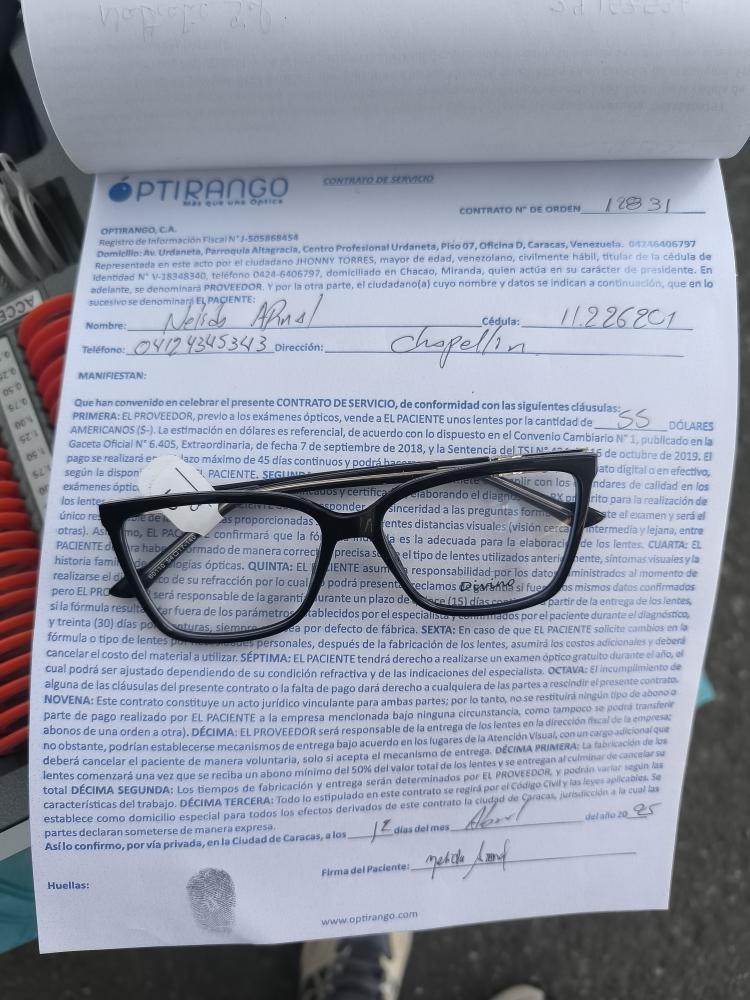 ÓPTIRANGO
Más que una Óptica
CONTRATO DE SERVICIO
CONTRATO N° DE ORDEN 12831
OPTIRANGO, C.A.
Registro de Información Fiscal N° J-505868454
Domicilio: Av. Urdaneta, Parroquia Altagracia, Centro Profesional Urdaneta, Piso 07, Oficina D, Caracas, Venezuela. 04246406797
Representada en este acto por el ciudadano JHONNY TORRES, mayor de edad, venezolano, civilmente hábil, titular de la cédula de
Identidad N° V-18348340, teléfono 0424-6406797, domiciliado en Chacao, Miranda, quien actúa en su carácter de presidente. En
adelante, se denominará PROVEEDOR. Y por la otra parte, el ciudadano(a) cuyo nombre y datos se indican a continuación, que en lo
sucesivo se denominará EL PACIENTE:
Nombre: Nelida Cédula: 11.226201
Teléfono: 04124345343 Dirección: Chapellin
MANIFIESTAN:
Que han convenido en celebrar el presente CONTRATO DE SERVICIO, de conformidad con las siguientes cláusulas:
PRIMERA: EL PROVEEDOR, previo a los exámenes ópticos, vende a EL PACIENTE unos lentes por la cantidad de 55 DÓLARES
AMERICANOS ($-). La estimación en dólares es referencial, de acuerdo con lo dispuesto en el Convenio Cambiario N° 1, publicado en la
Gaceta Oficial N° 6.405, Extraordinaria, de fecha 7 de septiembre de 2018, y la Sentencia del de octubre de 2019. El
pago se realizará máximo de 45 días continuos y podrá digital o en efectivo,
según la PACIENTE. de calidad en los
exámenes y elaborando el para la realización de
los lentes con sinceridad a las preguntas el examen y será el
único proporcionadas distancias visuales (visión intermedia y lejana, entre
otras). confirmará que la es la adecuada para la elaboración de los lentes. CUARTA: EL
PACIENTE de manera el tipo de lentes utilizados síntomas visuales y la
historia ópticas. QUINTA: EL PACIENTE responsabilidad por los al momento de
realizarse el de su refracción por lo cual podrá reclamos mismos datos confirmados
pero EL será responsable de la durante un plazo de (15) días partir de la entrega de los lentes,
si la fórmula fuera de los parámetros establecidos por el especialista por el paciente durante el diagnóstico,
y treinta (30) días por siempre por defecto de fábrica. SEXTA: En caso de que EL PACIENTE solicite cambios en la
fórmula o tipo de lentes por personales, después de la fabricación de los lentes, asumirá los costos adicionales y deberá
cancelar el costo del material a utilizar. SÉPTIMA: EL PACIENTE tendrá derecho a realizarse un examen óptico gratuito durante el año, el
cual podrá ser ajustado dependiendo de su condición refractiva y de las indicaciones del especialista. OCTAVA: El incumplimiento de
alguna de las cláusulas del presente contrato o la falta de pago dará derecho a cualquiera de las partes a rescindir el presente contrato.
NOVENA: Este contrato constituye un acto jurídico vinculante para ambas partes; por lo tanto, no se restituirá ningún tipo de abono o
parte de pago realizado por EL PACIENTE a la empresa mencionada bajo ninguna circunstancia, como tampoco se podrá transferir
abonos de una orden a otra). DÉCIMA: EL PROVEEDOR será responsable de la entrega de los lentes en la dirección fiscal de la empresa;
no obstante, podrían establecerse mecanismos de entrega bajo acuerdo en los lugares de la Atención Visual, con un cargo adicional que
deberá cancelar el paciente de manera voluntaria, solo si acepta el mecanismo de entrega. DÉCIMA PRIMERA: La fabricación de los
lentes comenzará una vez que se reciba un abono mínimo del 50% del valor total de los lentes y se entregan al culminar de cancelar su
total DÉCIMA SEGUNDA: Los tiempos de fabricación y entrega serán determinados por EL PROVEEDOR, y podrán variar según las
características del trabajo. DÉCIMA TERCERA: Todo lo estipulado en este contrato se regirá por el Código Civil y las leyes aplicables. Se
establece como domicilio especial para todos los efectos derivados de este contrato la ciudad de Caracas, jurisdicción a la cual las
partes declaran someterse de manera expresa.
Así lo confirmo, por vía privada, en la Ciudad de Caracas, a los 12 días del mes Abril del año 20 25
Firma del Paciente:
Huellas:
www.optirango.com